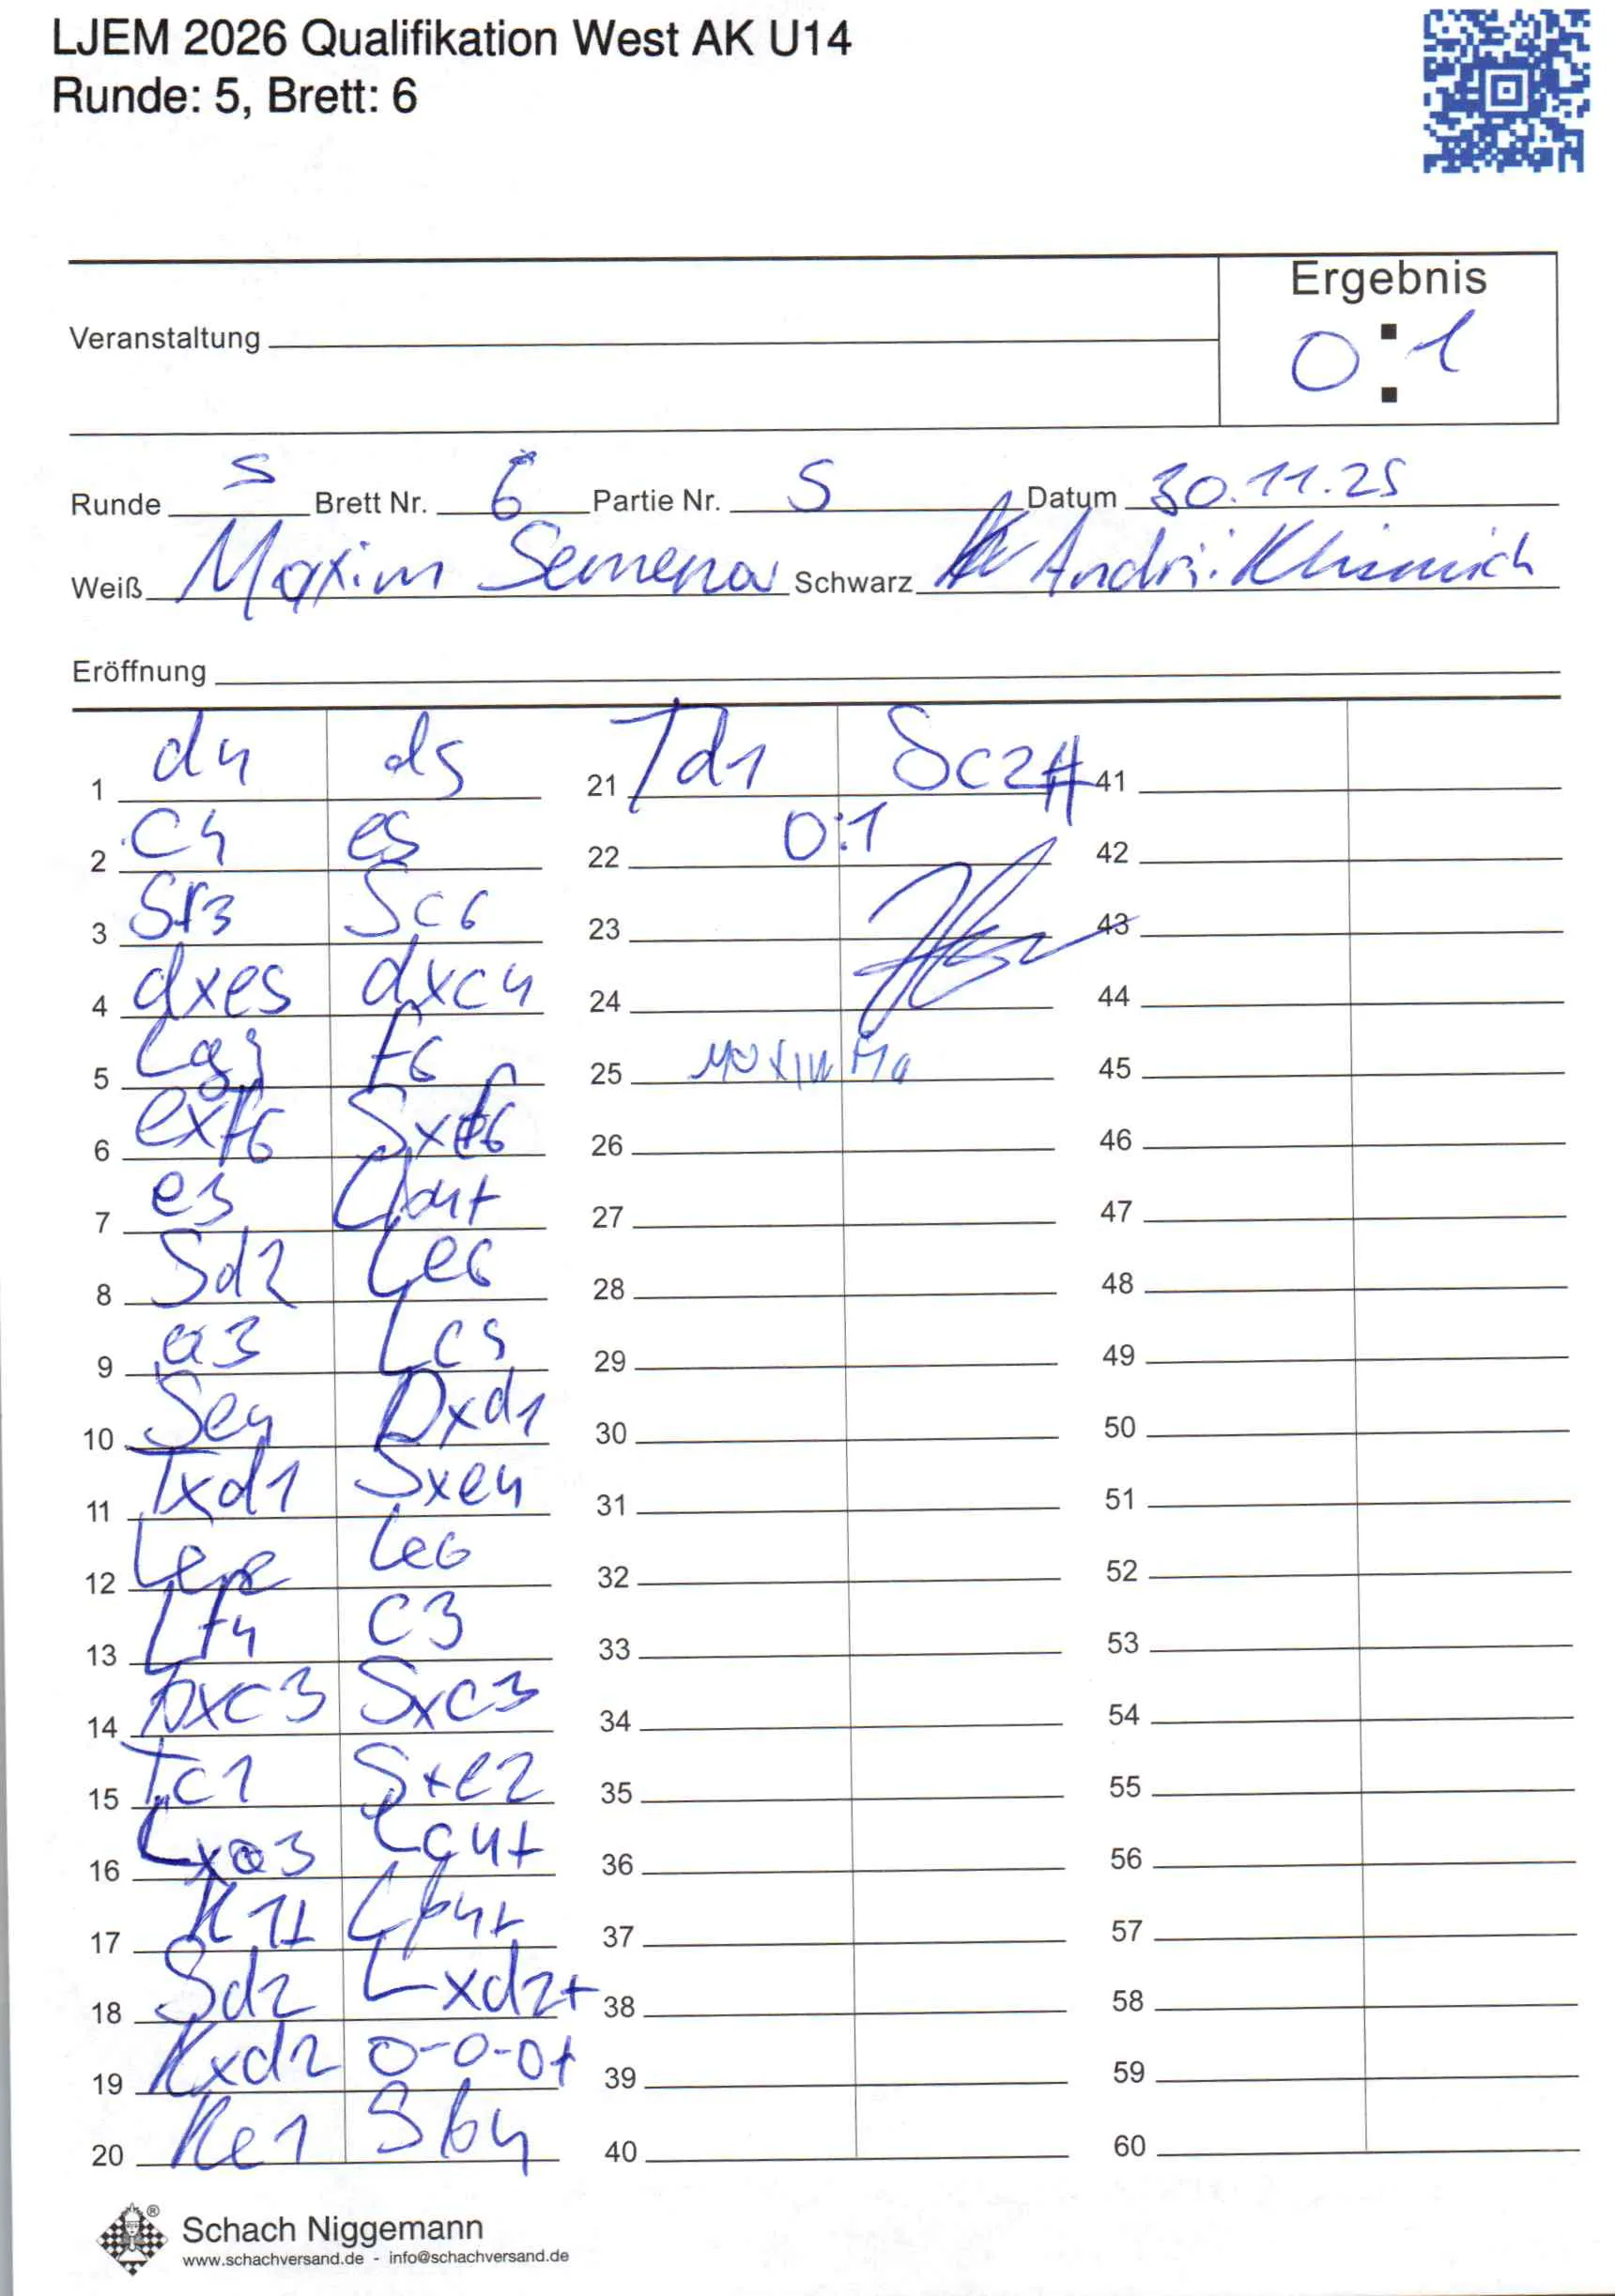 LJEM 2026 Qualifikation West AK U14
Runde: 5, Brett: 6
Ergebnis
Veranstaltung
0:1
Runde 5 Brett Nr. 6 Partie Nr. 5 Datum 30.11.25
Weiß Maxim Schwarz Andrii
Eröffnung
1 d4 d5 21 Td1 Sc2# 41
2 c4 e5 22 0:1 42
3 Sf3 Sc6 23 43
4 dxe5 dxc4 24 44
5 Lg5 f6 25 45
6 exf6 Sxf6 26 46
7 e3 Lb4+ 27 47
8 Sd2 Le6 28 48
9 a3 Lc5 29 49
10 Se4 Dxd1 30 50
11 Txd1 Sxe4 31 51
12 Le2 Le6 32 52
13 Lf4 c3 33 53
14 bxc3 Sxc3 34 54
15 Tc1 Sxe2 35 55
16 Lxa3 Lc4+ 36 56
17 K11 Lb4+ 37 57
18 Sd2 Lxd2+ 38 58
19 Kxd2 0-0-0+ 39 59
20 Ke1 Sb4 40 60
Schach Niggemann
www.schachversand.de - info@schachversand.de